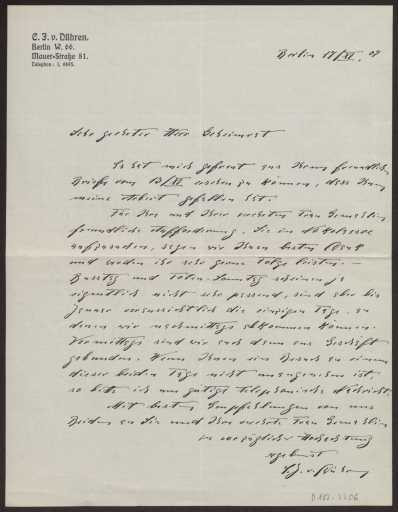 C. F. v. Dühren.
Berlin W. 66.
Mauer-Straße 81.
Telephon: I, 6645.
Berlin 17/XI. 07
Sehr geehrter Herr Geheimrat
Es hat mich gefreut aus Ihrem freundlichen
Briefe vom 13/XI ersehen zu können, dass Ihnen
meine Arbeit gefallen hat.
Für Ihre und Ihrer verehrten Frau Gemahlin
freundliche Aufforderung, Sie in
aufzusuchen, sagen wir Ihnen besten Dank
und werden ihr sehr gerne Folge leisten. —
Busstag und Toten-Sonntag scheinen ja
eigentlich nicht sehr passend, sind aber bis
Januar voraussichtlich die einzigen Tage, an
denen wir nachmittags abkommen können.
Vormittags sind wir auch dann ans Geschäft
gebunden. Wenn Ihnen ein Besuch an einem
dieser beiden Tage nicht unangenehm ist,
so bitte ich um gütige telephonische Nachricht.
Mit besten Empfehlungen von uns
Beiden an Sie und Ihre verehrte Frau Gemahlin
in vorzüglicher Hochachtung
ergebenst
C. F. v. Dühren